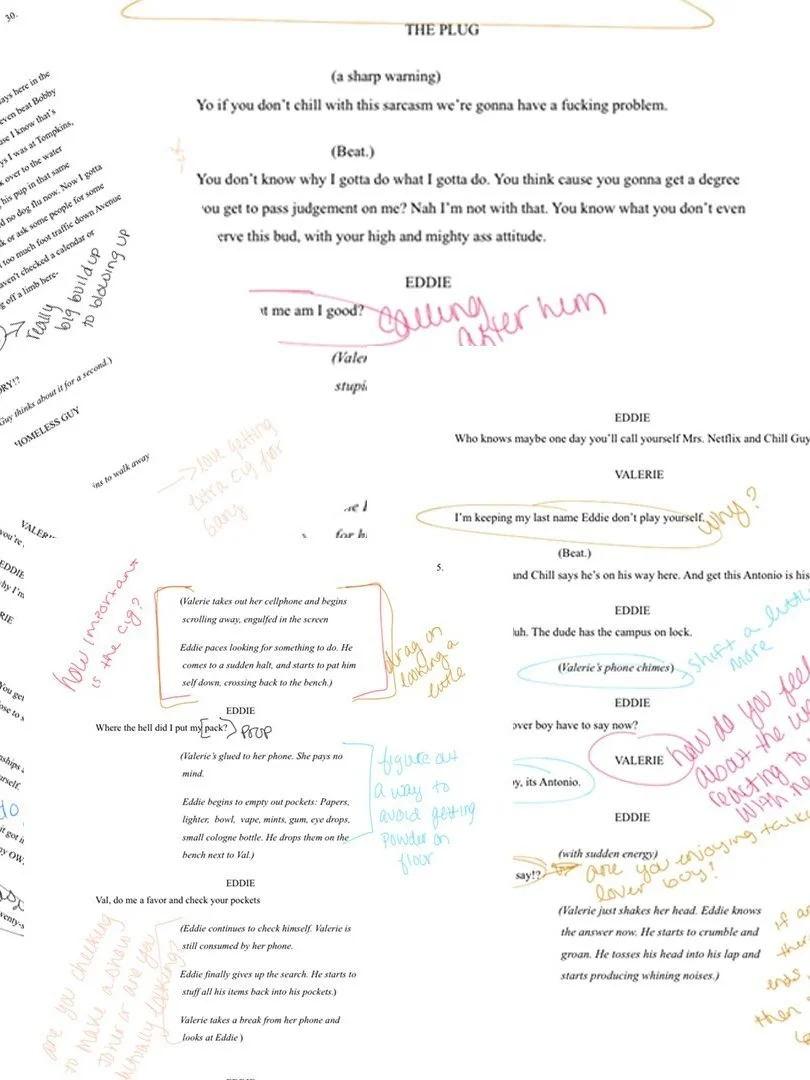 30.
ays here in the
even beat Bobby
use I know that's
ys I was at Tompkins,
k over to the water
his pup in that same
d no dog flu now. Now I gotta
k or ask some people for some
too much foot traffic down Avenue
aven't checked a calendar or
g off a limb here-
really
big build up
to blowing up
ORY!?
Guy thinks about it for a second.)
HOMELESS GUY
ins to walk away
THE PLUG
(a sharp warning)
Yo if you don't chill with this sarcasm we're gonna have a fucking problem.
(Beat.)
You don't know why I gotta do what I gotta do. You think cause you gonna get a degree
ou get to pass judgement on me? Nah I'm not with that. You know what you don't even
erve this bud, with your high and mighty ass attitude.
EDDIE
t me am I good?
calling
after him
(Valer
stupi
love getting
extra cig for
for h
VALER
you're
EDDIE
hy I'm
RIE
You get
ose to s
nships
urself.
do
it got i
by OW
wenty-s
how important
is the cig?
(Valerie takes out her cellphone and begins
scrolling away, engulfed in the screen
Eddie paces looking for something to do. He
comes to a sudden halt, and starts to pat him
self down, crossing back to the bench.)
drag on
looking a
little
EDDIE
Where the hell did I put my pack?
prop
(Valerie's glued to her phone. She pays no
mind.
Eddie begins to empty out pockets: Papers,
lighter, bowl, vape, mints, gum, eye drops,
small cologne bottle. He drops them on the
bench next to Val.)
figure out
a way to
avoid getting
powder on
floor
EDDIE
Val, do me a favor and check your pockets
(Eddie continues to check himself. Valerie is
still consumed by her phone.
Eddie finally gives up the search. He starts to
stuff all his items back into his pockets.)
Valerie takes a break from her phone and
looks at Eddie )
are you checking
to make a show
or are you
actually looking?
5.
EDDIE
Who knows maybe one day you'll call yourself Mrs. Netflix and Chill Guy
VALERIE
I'm keeping my last name Eddie don't play yourself.
why?
(Beat.)
and Chill says he's on his way here. And get this Antonio is his
EDDIE
uh. The dude has the campus on lock.
(Valerie's phone chimes)
shift a little
more
EDDIE
over boy have to say now?
VALERIE
how do you feel
about the
reacting to
with
y, its Antonio.
EDDIE
(with sudden energy)
say!?
are you enjoying
lover boy!
(Valerie just shakes her head. Eddie knows
the answer now. He starts to crumble and
groan. He tosses his head into his lap and
starts producing whining noises.)
if
ends
then